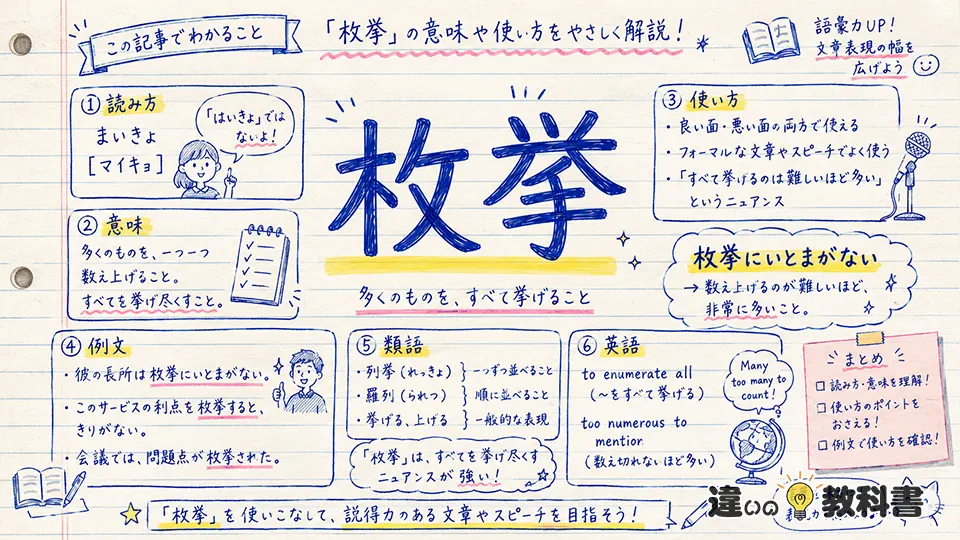 この記事でわかること
「枚挙」の意味や使い方をやさしく解説！
語彙力UP！
文章表現の幅を
広げよう
① 読み方
まいきょ
［マイキョ］
「はいきょ」では
ないよ！
② 意味
多くのものを、一つ一つ
数え上げること。
すべてを挙げ尽くすこと。
枚挙
多くのものを、すべて挙げること
③ 使い方
・良い面・悪い面の両方で使える
・フォーマルな文章やスピーチでよく使う
・「すべて挙げるのは難しいほど多い」
というニュアンス
枚挙にいとまがない
→ 数え上げるのが難しいほど、
非常に多いこと。
④ 例文
・彼の長所は枚挙にいとまがない。
・このサービスの利点を枚挙すると、
きりがない。
・会議では、問題点が枚挙された。
⑤ 類語
・列挙（れっきょ） } 一つずつ並べること
・羅列（られつ） } 順に並べること
・挙げる、上げる } 一般的な表現
「枚挙」は、すべてを挙げ尽くす
ニュアンスが強い！
⑥ 英語
to enumerate all
（〜をすべて挙げる）
too numerous to
mention
（数え切れないほど多い）
Many
too many to
count!
まとめ
□ 読み方・意味を理解！
□ 使い方のポイントを
おさえる！
□ 例文で使い方を確認！
「枚挙」を使いこなして、説得力のある文章やスピーチを目指そう！
違いの教科書